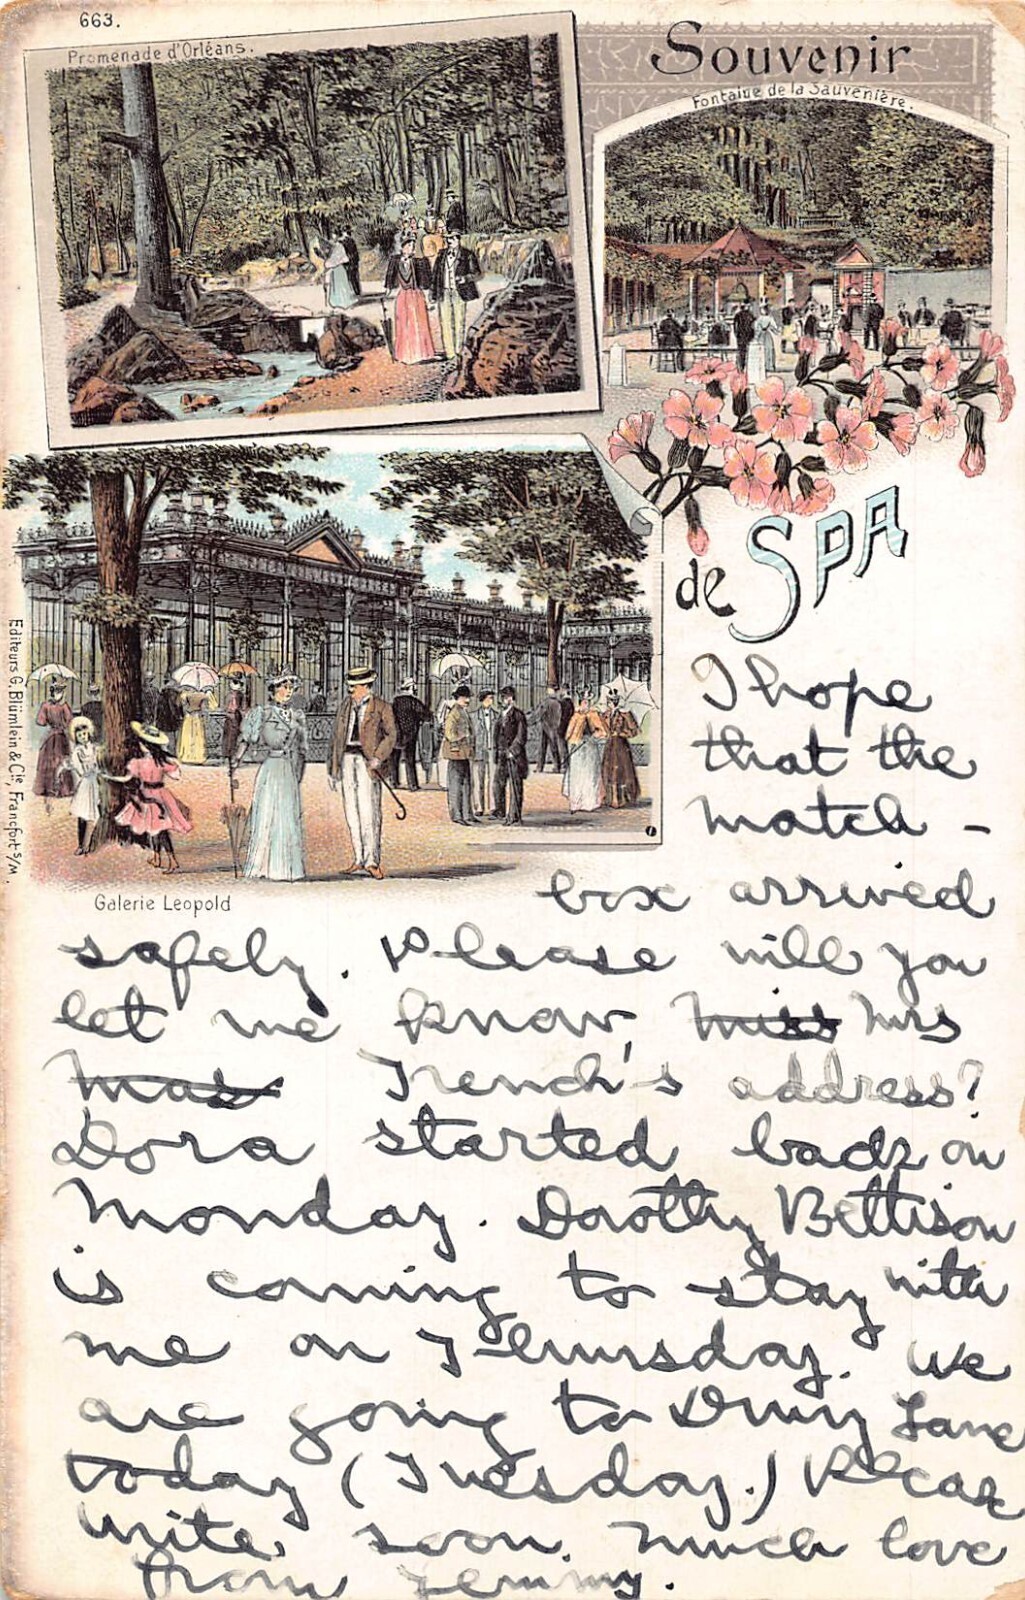 663.
Promenade d'Orléans.
Souvenir
Fontaine de la Sauvenière.
de SPA
Editeurs G. Blümlein & Cie, Francfort s/M.
Galerie Leopold
I hope
that the
match -
box arrived
safely. Please will you
let me know, miss Mrs
Trench's address?
Dora started back on
Monday. Dorothy Bettison
is coming to stay with
me on Thursday. We
are going to Drury Lane
today (Tuesday.) Please
write soon. Much love
from Jemmy.